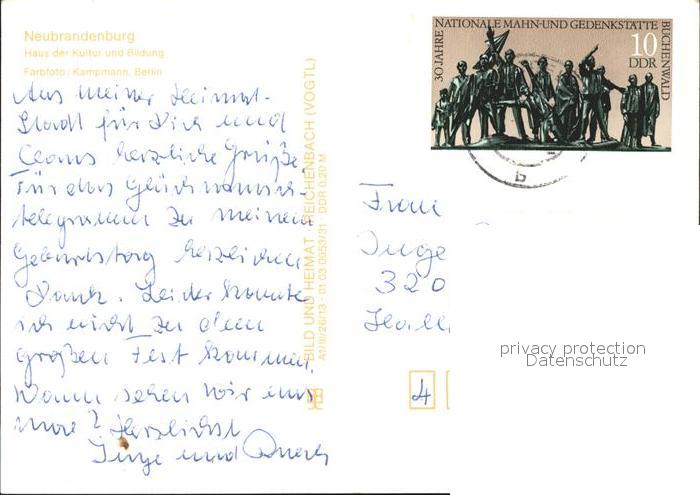 Neubrandenburg
Haus der Kultur und Bildung
Farbfoto: Kampmann, Berlin
Aus meiner Heimat-
stadt für Dich und
Claus herzliche Grüße.
Für das Glückwunsch-
telegramm zu meinem
Geburtstag herzlichen
Dank. Leider konnte
ich nicht zu dem
großen Fest kommen.
Wann sehen wir uns
mal? Herzlichst
Inge und
BILD UND HEIMAT REICHENBACH (VOGTL)
A1/III/26/13 01 03 0653/31 DDR 0,20 M
30 JAHRE NATIONALE MAHN-UND GEDENKSTÄTTE BUCHENWALD
10
DDR
b
Frau
Inge
320
4
privacy protection
Datenschutz